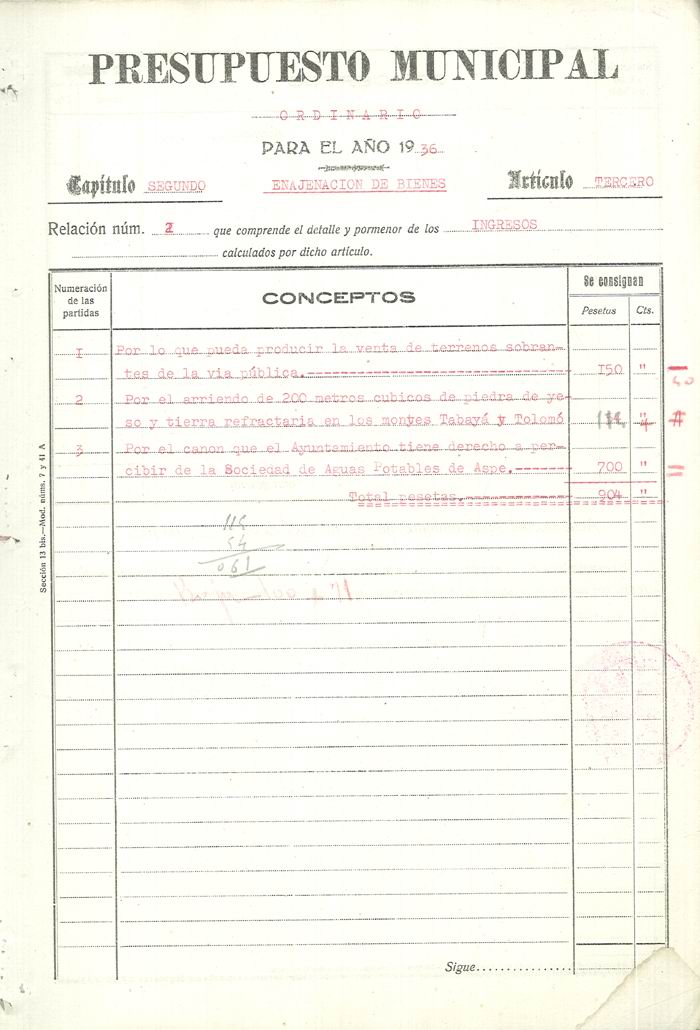 PRESUPUESTO MUNICIPAL
ORDINARIO
PARA EL AÑO 1936
Capítulo SEGUNDO ENAJENACION DE BIENES Artículo TERCERO
Relación núm. que comprende el detalle y pormenor de los INGRESOS
calculados por dicho artículo.
Numeración de las partidas CONCEPTOS Se consignan
Pesetas Cts.
I Por lo que pueda producir la venta de terrenos sobran-
tes de la via pública.- 150 "
2 Por el arriendo de 200 metros cubicos de piedra de ye-
so y tierra refractaria en los montes Tabayá y Tolomó
3 Por el canon que el Ayuntamiento tiene derecho a per-
cibir de la Sociedad de Aguas Potables de Aspe.- 700 "
Total pesetas.- 904 "
54
061
Sección 13 bis.—Mod. núms. 7 y 41 A
Sigue